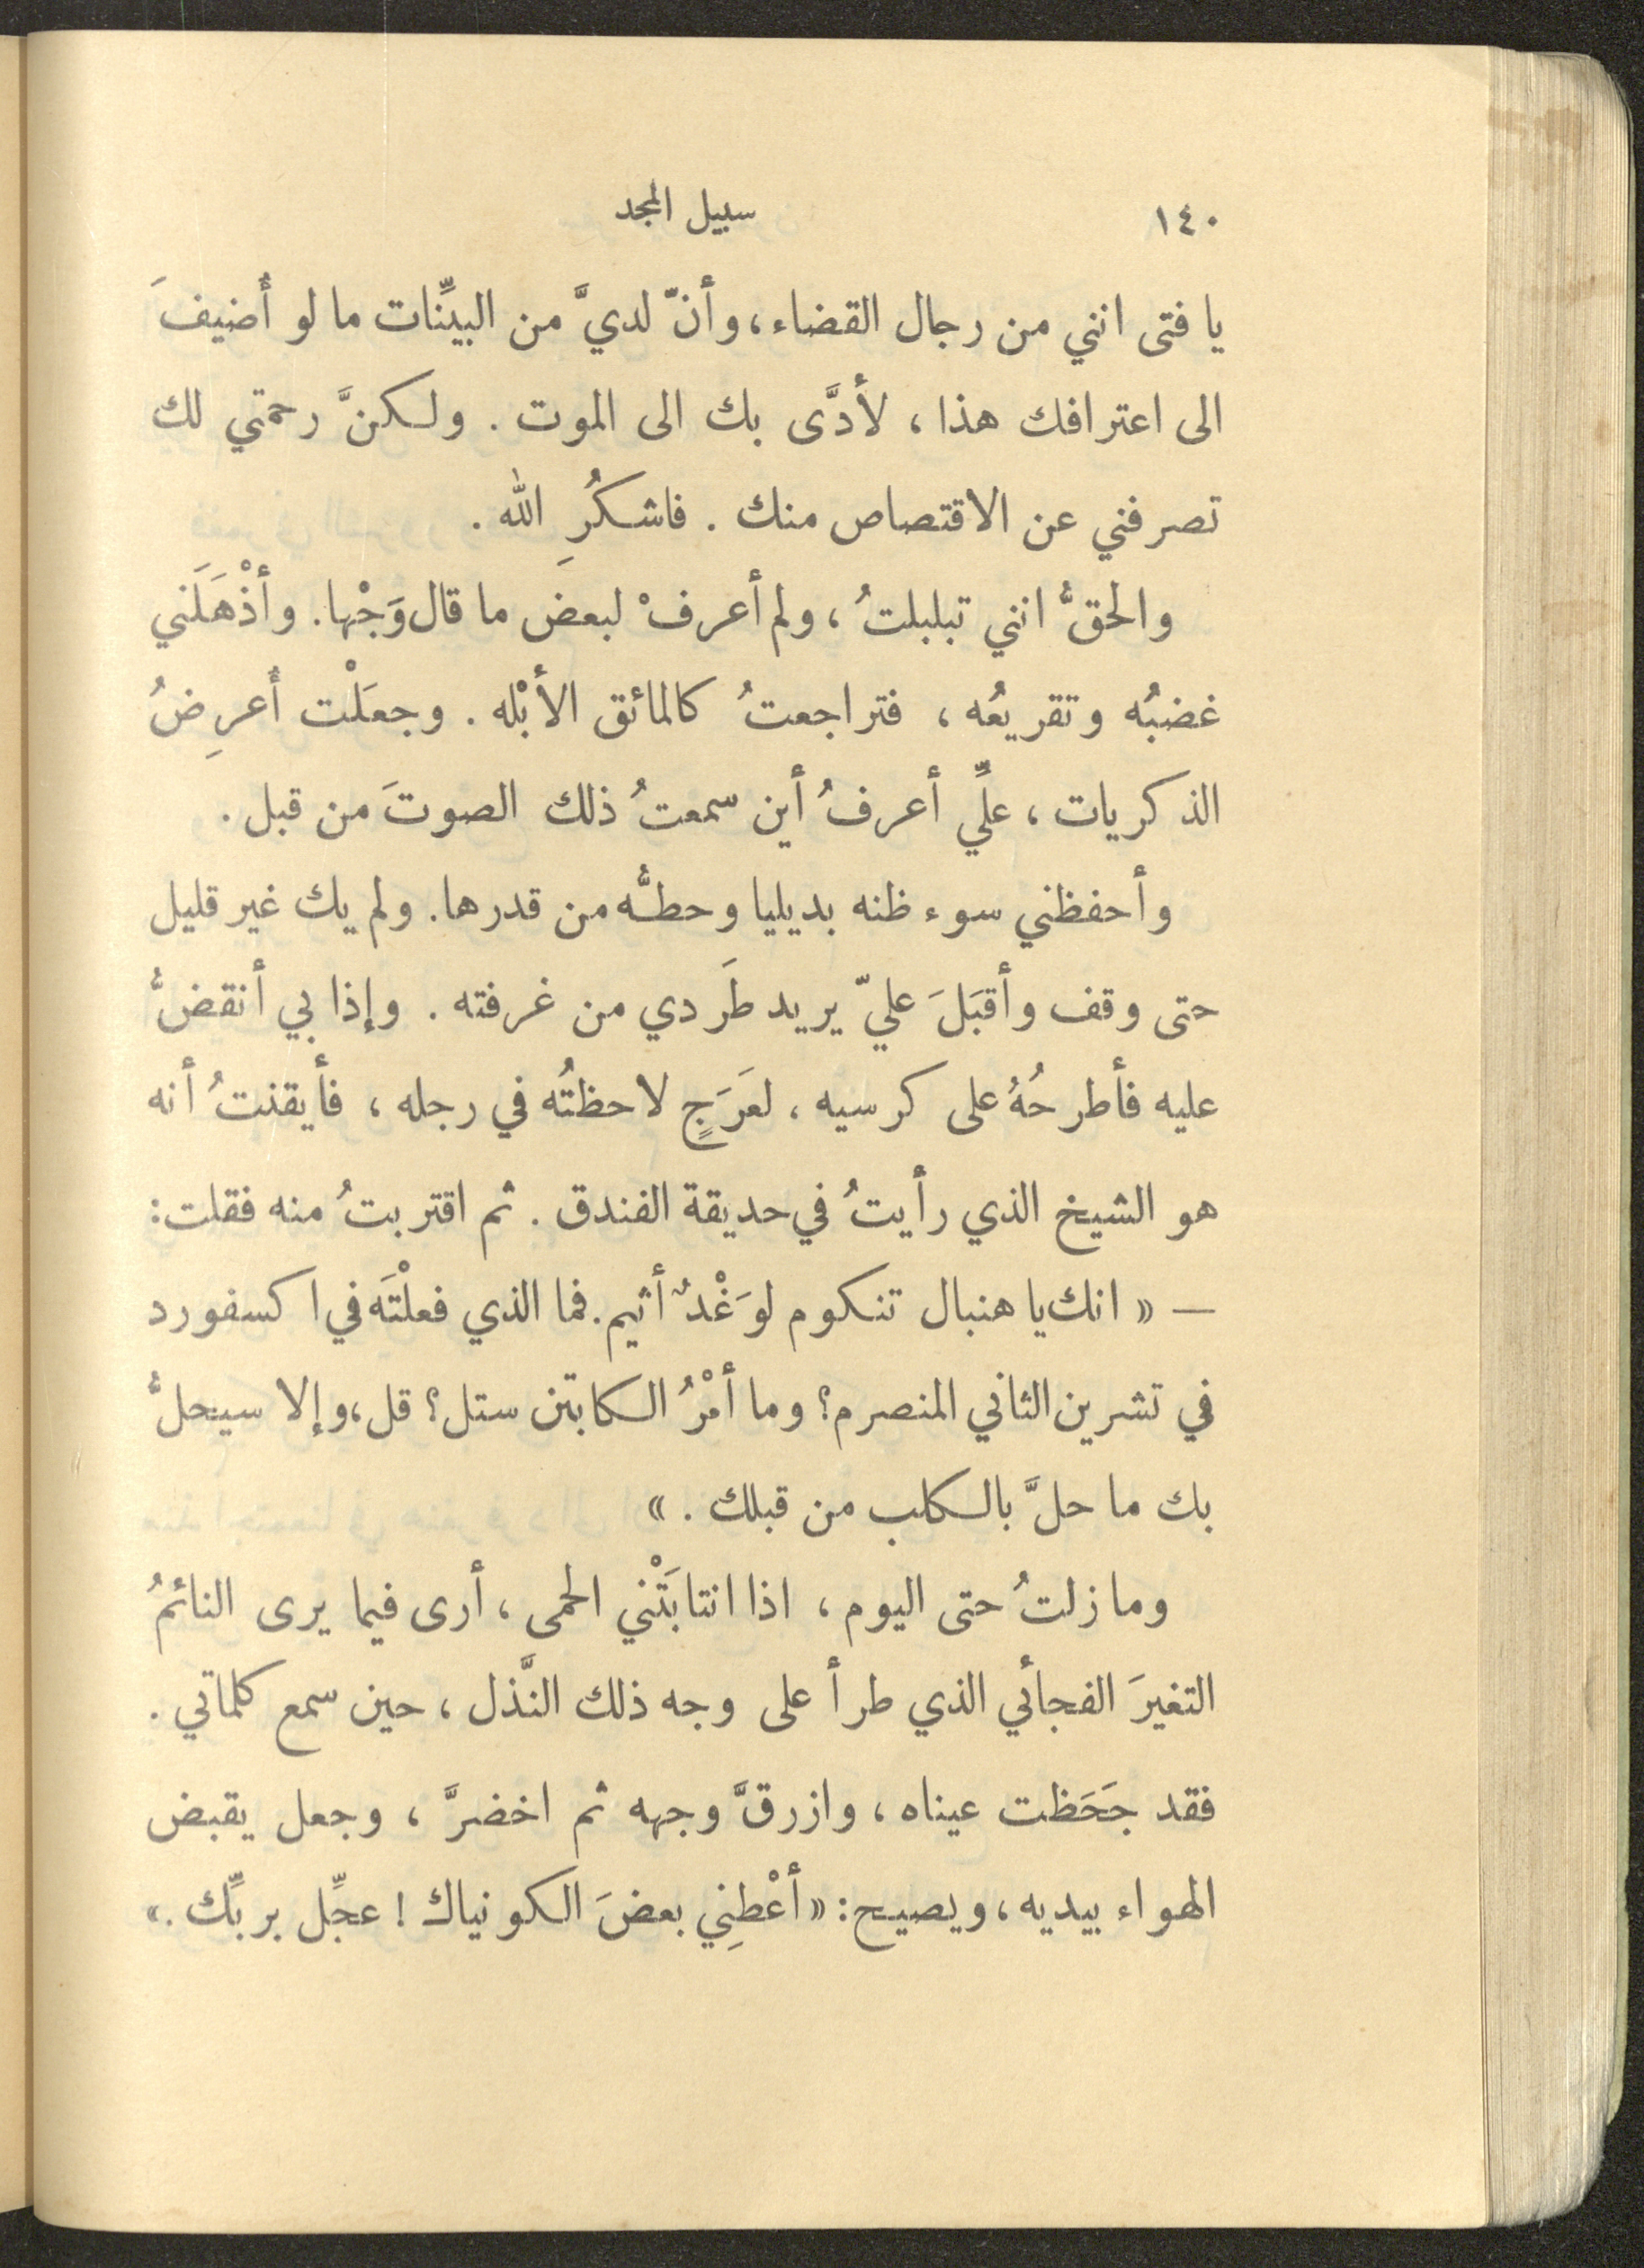 ١٤٠ سبيل المجد
يا فتى انني من رجال القضاء، وأنّ لديَّ من البيِّنات ما لو أُضيفَ
الى اعترافك هذا، لأدَّى بك الى الموت. ولكنَّ رحمتي لك
تصرفني عن الاقتصاص منك. فاشكُرِ الله.
والحقُّ انني تبلبلتُ، ولم أعرفْ لبعض ما قال وَجْها. وأذْهَلَني
غضبُه وتقريعُه، فتراجعتُ كالمائق الأبْله. وجعَلْت أَعرِضُ
الذكريات، علِّي أعرفُ أين سمعتُ ذلك الصوتَ من قبل.
وأحفظني سوء ظنه بديليا وحطُّه من قدرها. ولم يك غير قليل
حتى وقف وأقبَلَ عليّ يريد طَردي من غرفته. وإذا بي أنقضُّ
عليه فأطرحُهُ على كرسيه، لعَرَجٍ لاحظتُه في رجله، فأيقنتُ أنه
هو الشيخ الذي رأيتُ في حديقة الفندق. ثم اقتربتُ منه فقلت:
— « انك يا هنبال تنكوم لوَغْدٌ أثيم. فما الذي فعلْتَه في اكسفورد
في تشرين الثاني المنصرم؟ وما أمْرُ الكابتن ستل؟ قل، وإلا سيحلُّ
بك ما حلَّ بالكلب من قبلك. »
وما زلتُ حتى اليوم، اذا انتابَتْني الحمى، أرى فيما يرى النائمُ
التغيرَ الفجأئي الذي طرأ على وجه ذلك النَّذل، حين سمع كلماتي.
فقد جَحَظت عيناه، وازرقَّ وجهه ثم اخضرَّ، وجعل يقبض
الهواء بيديه، ويصيح: « أعْطِني بعضَ الكونياك! عجِّل بربِّك. »